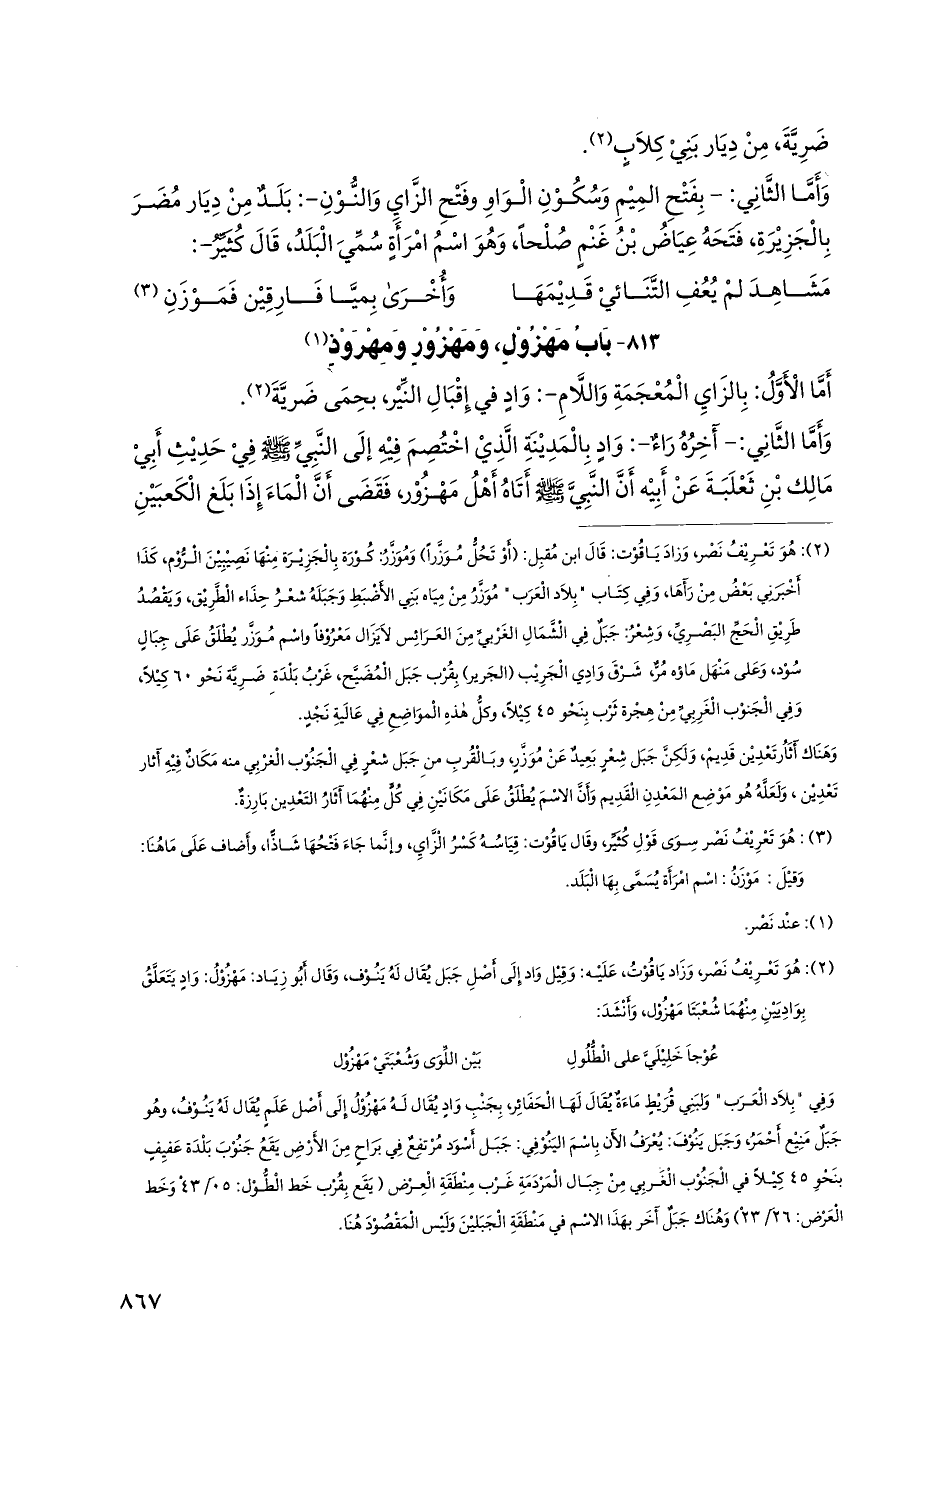 ضَرِيَّةَ، مِنْ دِيَار بَنِيْ كِلاَبٍ(٢).
وَأَمَّا الثَّانِي: - بِفَتْحِ المِيْمِ وَسُكُوْنِ الْوَاوِ وفَتْحِ الزَّايِ وَالنُّوْنِ-: بَلَدٌ مِنْ دِيَار مُضَرَ
بِالْجَزِيْرَةِ، فَتَحَهُ عِيَاضُ بْنُ غَنْمٍ صُلْحاً، وَهُوَ اسْمُ امْرَأَةٍ سُمِّيَ الْبَلَدُ، قَالَ كُثَيِّرٌ-:
مَشَاهِدَ لمْ يُعْفِ التَّنَائيْ قَدِيْمَهَا وَأُخْرَىٰ بِميَّا فَارِقِيْن فَمَوْزَنِ (٣)
٨١٣- بَابُ مَهْزُوْلٍ، وَمَهْزُوْرٍ وَمَهْرَوْذٍ(١)
أَمَّا الْأَوَّلُ: بِالزَايِ الْمُعْجَمَةِ وَاللَّامِ-: وَادٍ في إِقْبَالِ النِّيْرِ، بحِمَى ضَرِيَّةَ(٢).
وَأَمَّا الثَّاني:- آخِرُهُ رَاءٌ-: وَادٍ بِالْمَدِيْنَةِ الَّذِيْ اخْتُصِمَ فِيْهِ إلَى النَّبِيِّ ﷺ فِيْ حَدِيْثِ أَبِيْ
مَالِك بْنِ ثَعْلَبَةَ عَنْ أَبِيْه أَنَّ النَّبِيَّ ﷺ أَتَاهُ أَهْلُ مَهْزُوْر، فَقَضَى أَنَّ الْمَاءَ إِذَا بَلَغ الْكَعبَيْنِ
(٢): هُوَ تَعْرِيْفُ نَصْر، وَزادَ يَاقُوْت: قَالَ ابن مُقبِل: (أَوْ تَحُلُّ مُوَزَّراً) وَمُوَزَّرٌ: كُوْرَة بِالْجَزِيْرَة مِنْهَا نَصِيْبِيْنَ الرُّوْم، كَذَا
أَخْبَرَنِي بَعْضُ مِنْ رَآهَا، وَفي كِتَاب "بِلَاد الْعَرَب" مُوَزَّرٌ مِنْ مِيَاه بَنِي الأَضْبَطِ وَجَبَلَهُ شعْرٌ حِذَاء الطَّرِيْق، وَيَقْصُدُ
طَرِيْق الْحَجِّ البَصْرِيِّ، وَشِعْرٌ: جَبَلٌ فِي الشَّمَال الغَرْبِيِّ مِنَ العَرَائس لَا يَزَال مَعْرُوْفاً واسْم مُوَزَّر يُطْلَقُ عَلَى جِبَالٍ
سُوْد، وَعَلى مَنْهَل مَاؤه مُرٌّ، شَرْقَ وَادِي الْجَرِيْب (الجرير) بِقُرْب جَبَل الْمُضَيَّح، غَرْبُ بَلْدَة ضَرِيَّة نَحْو ٦٠ كِيْلاً،
وَفِي الْجَنُوْب الْغَرْبِيِّ مِنْ هِجْرة ثَرْب بِنَحْو ٤٥ كِيْلاً، وكلُّ هٰذِهِ المواضِع فِي عَالِيَةِ نَجْدٍ.
وَهَنَاك آثَارُ تَعْدِيْن قَدِيْم، وَلٰكِنَّ جَبَل شِعْر بَعِيدٌ عَنْ مُوَزَّر، وبَالْقُرب من جَبَل شعْر فِي الْجَنُوْب الْغَرْبي منه مَكَانٌ فِيْهِ آثار
تَعْدِيْن ، وَلَعَلَّهُ هُو مَوْضِع المَعْدن القَدِيم وَأَنَّ الاسْم يُطْلَقُ عَلَى مَكَانَيْن فِي كُلٍّ مِنْهُمَا آثَارُ التَّعْدِين بَارِزَةٌ.
(٣) : هُوَ تَعْرِيْفُ نَصْر سِوَى قَوْل كُثَيِّر، وقَال يَاقُوْت: قِيَاسُهُ كَسْرُ الزَّاي، وإنَّما جَاءَ فَتْحُهَا شَاذًّا، وأضاف عَلَى مَاهُنَا:
وَقِيْلَ : مَوْزَنُ : اسْم امْرَأة يُسَمَّى بِهَا الْبَلَد.
(١): عنْد نَصْر.
(٢): هُوَ تَعْرِيْفُ نَصْر، وَزَاد يَاقُوْتُ، عَلَيْه: وَقِيْل وَاد إِلَى أَصْلِ جَبَل يُقَال لَهُ يَنُوْف، وَقَال أَبُو زِيَاد: مَهْزُوْلٌ: وَادٍ يَتَعَلَّقُ
بِوَادِيَيْنِ مِنْهُمَا شُعْبَتَا مَهْزُوْل، وَأَنْشَدَ:
عُوْجاَ خَلِيْلَيَّ على الْطُّلُولِ بَيْن اللِّوَى وَشُعْبَتَيْ مَهْزُوْل
وَفِي "بِلَاد الْعَرَب" وَلبَنِي قُرَيْطٍ مَاءَةٌ يُقَالُ لَهَا الْحَفَائِر، بِجَنْبِ وَادٍ يُقَال لَهُ مَهْزُوْلٌ إلَى أَصْل عَلَمٍ يُقَال لَهُ يَنُوْفُ، وهُو
جَبَلٌ مَنِيْع أَحْمَرُ، وَجَبَل يَنُوْفَ: يُعْرَفُ الْآن بِاسْمِ اليَنُوْفِي: جَبَل أَسْوَد مُرْتَفِعٌ فِي بَرَاح مِنَ الأَرْضِ يَقَعُ جَنُوْبَ بَلْدَة عَفِيفٍ
بنَحْوِ ٤٥ كِيْلاً في الْجَنُوْب الْغَربي مِنْ جِبَال المَرْدَمَةِ غَرْب مِنْطَقَةِ الْعِرْض ( يَقَع بِقُرْب خَط الطُّوْل: ٠٥ /٤٣ْ وَخط
الْعَرْض: ٢٦ /٢٣ْ) وَهُنَاك جَبَلٌ آخَر بهَذَا الاسْم في مَنْطَقَةِ الْجَبَلَيْن وَلَيْس الْمَقْصُوْد هُنَا.
٨٦٧